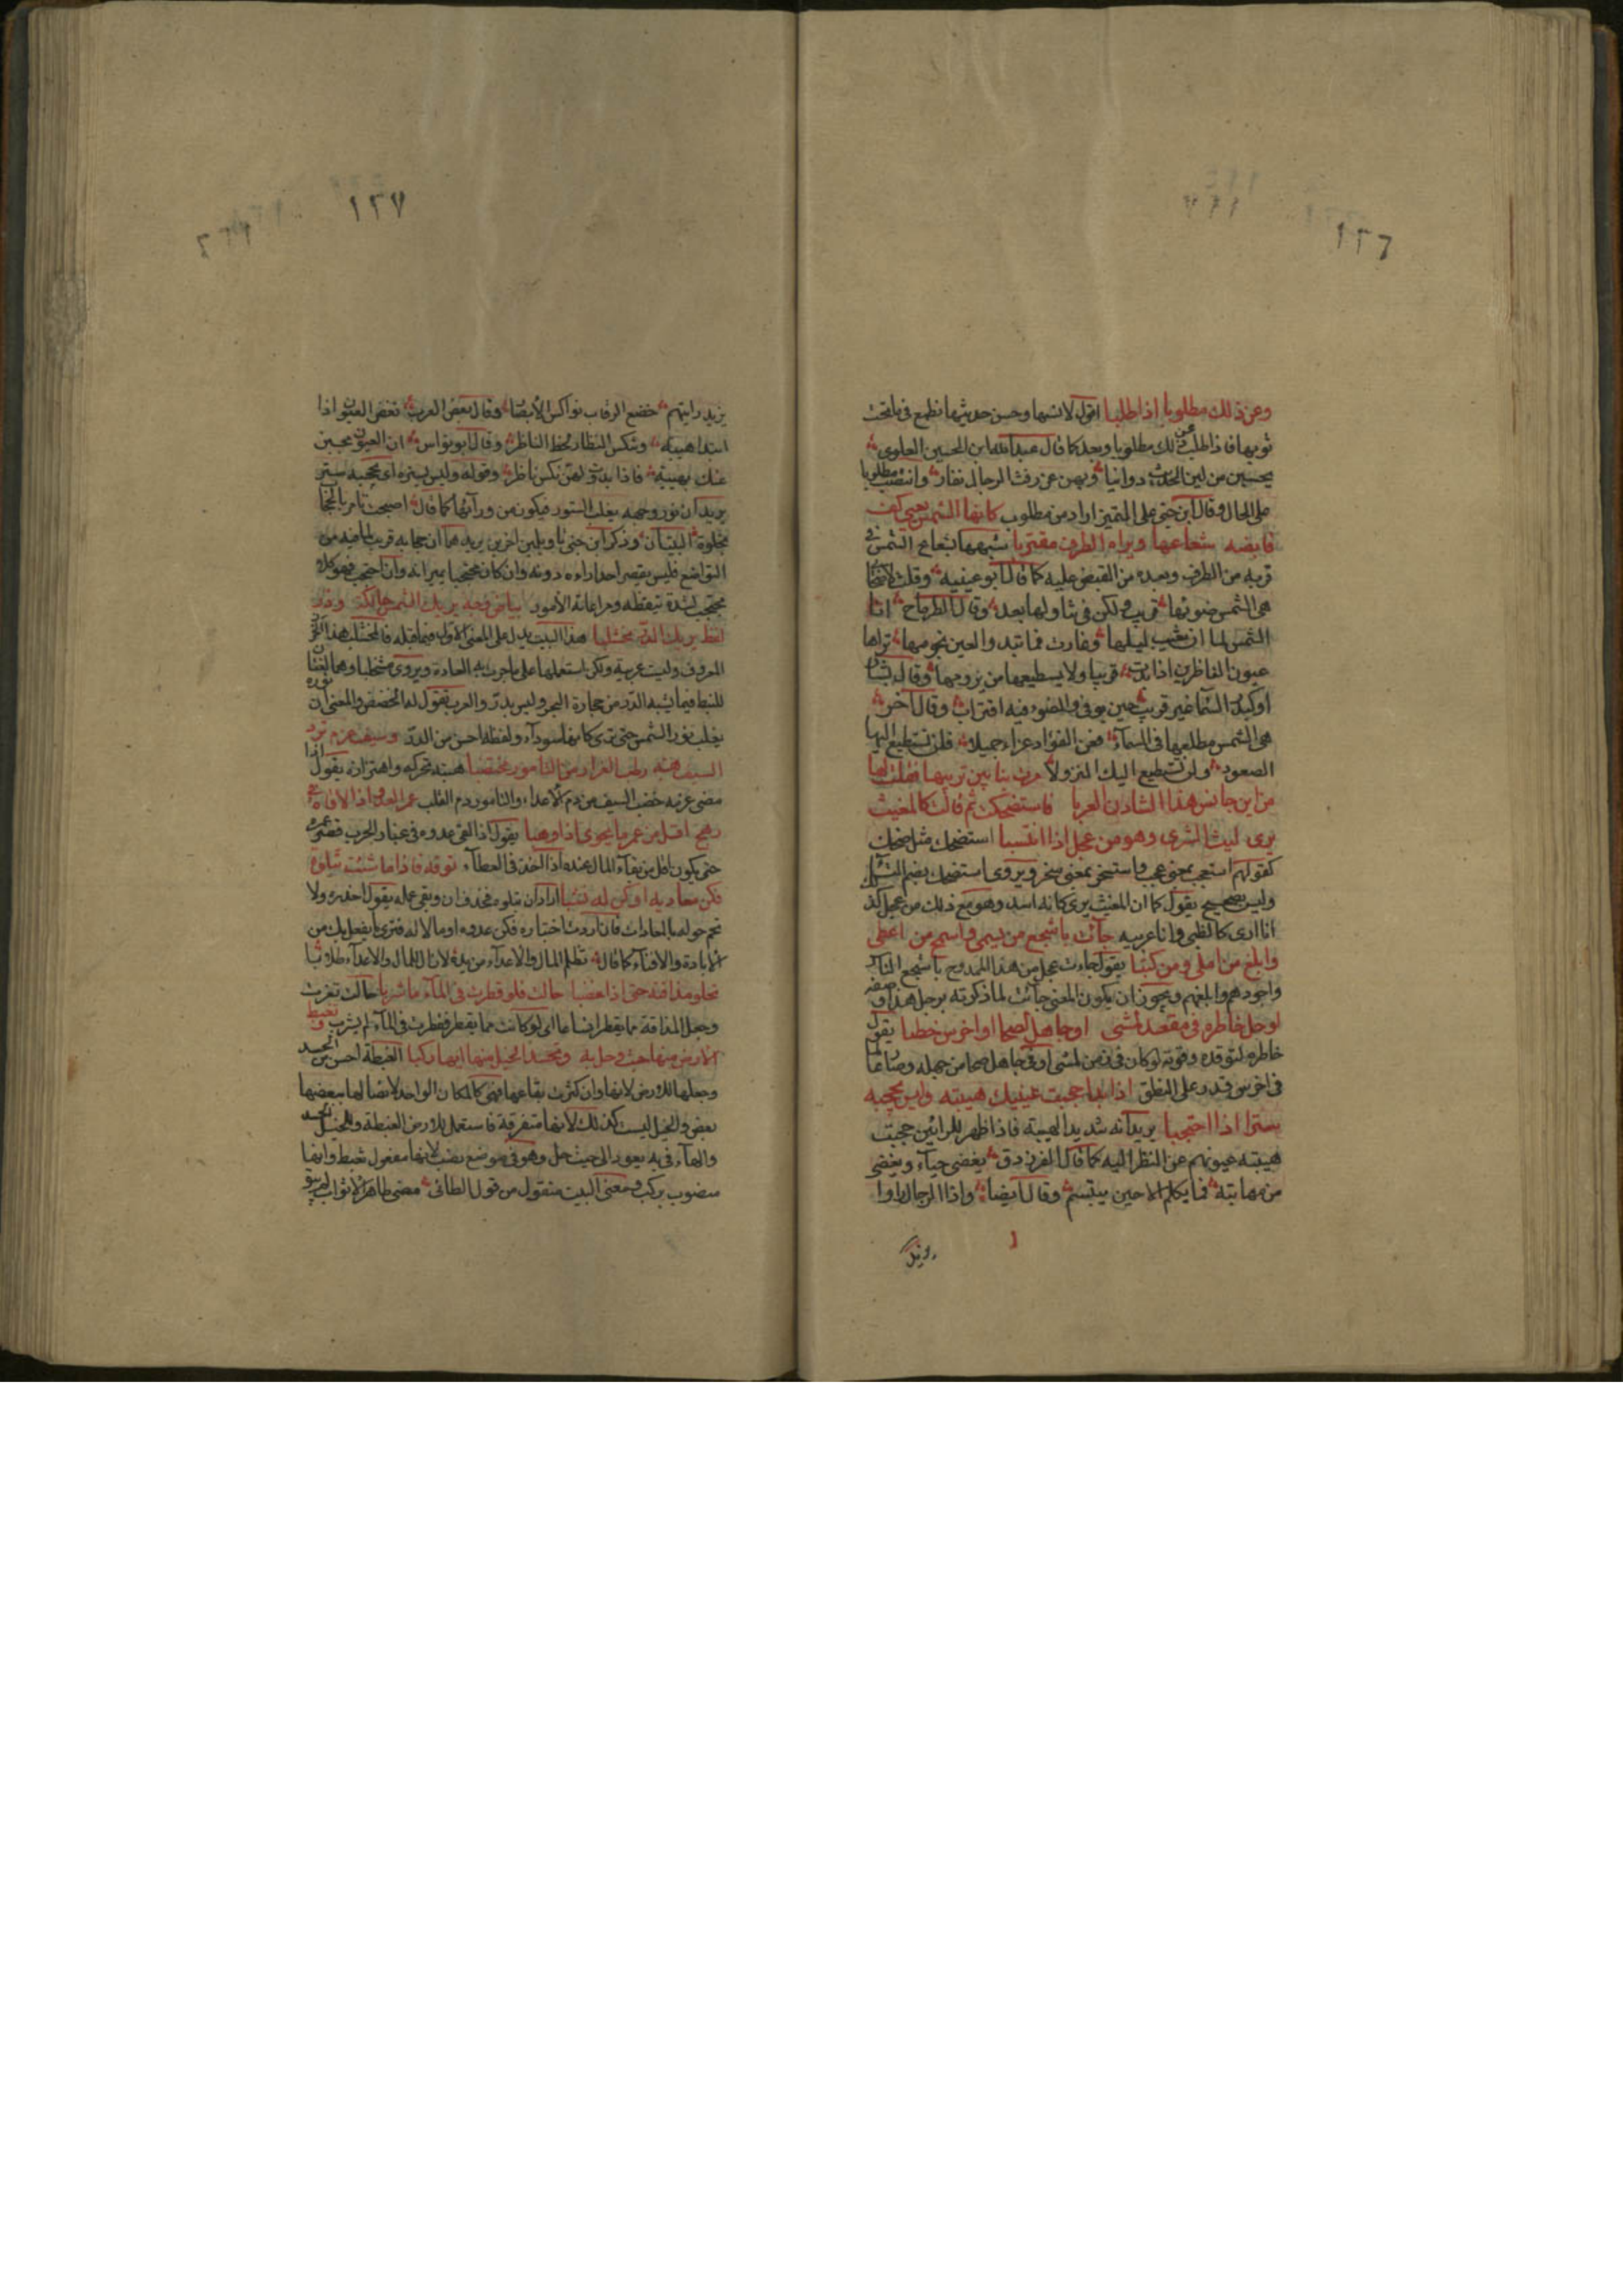 ١٢٦
وعز ذلك مطلوبا إذا طلبا اقول لانسها وحسن حديثها نطمع فيما تحت
ثوبها فاذا طلبت عز ذلك مطلوبا وبعد كما قال عبد الله ابن الحسين العلوي
يحسبن من لين الحديث دوانيا وبهن عن رفث الرجال نفار وانتصب مطلوبا
على الحال وقال ابن جنى على التميز اراد من مطلوب كانها الشمس يعيى كف
قابضه شعاعها ويراه الطرف مقتربا شبهها بشعاع الشمس في
قربه من الطرف وبعده من القبض عليه كما قال ابو عيينة وقلت لاصحابي
هى الشمس ضوئها قريب ولكن في تناولها بعد وقال الطرماح انا
الشمس لما ان تغيب ليلها وغارت فما تبدو العين نجومها تراها
عيون الناظرين اذا بدت قريبا ولا يسطيعها من يرومها وقال بشار
او كبدر السما غير قريب حين يوفى والضوء فيه اقتراب وقال آخر
هى الشمس مطلعها في السماء فعز الفؤاد عزاء جميلا فلن تستطيع اليها
الصعود ولن تستطيع اليك النزولا مرت بنا بين تربيها فقلت لها
من اين جانس هذا الشادن العربا فاستضحكت ثم قالت كالمغيث
يرى ليث الشرى وهو من عجل اذا انتسبا استضحك مثل ضحك
كقولهم استعجب بمعنى عجب واستسخر بمعنى سخر ويروى استضحك بضم التاء
وليس بصحيح يقول كما ان المغيث يرى كانه اسد وهو مع ذلك من عجل كذ
انا ارى كالظبى وانا عربيه جآئت باشجع من يسمى واسمح من اعطى
وابلغ من املى ومن كتبا يقول جاءت عجل من هذا الممدوح باشجع الناس
واجودهم وابلغهم ويجوز ان يكون المعنى جآئت لما ذكرته برجل هذا وصفه
لو حل خاطره في مقعد لمشى او جاهل لصحا او اخرس خطبا يقول
خاطره لتوقده وقوته لو كان في زمن لمشى او في جاهل صحا من جهله وصار عالما
في اخرس قدر على النطق اذا بدا حجبت عينيك هيبته وليس يحجبه
ستر اذا احتجبا يريد انه شديد الهيبة فاذا ظهر للرائين حجبت
هيبته عيونهم عن النظر اليه كما قال الفرزدق يغضى حياء ويغضى
من مهابته فما يكلم الا حين يبتسم وقال ايضا واذا الرجال راوا
يزيد
١٢٧
يزيد رايتهم خضع الرقاب نواكس الأبصار وقال بعض العرب تغض العيون اذا
ابتدا هيبته وتنكس النظار لحظ الناظر وقال ابو نواس ان العيون حجبن
عنك بهيبته فاذا بدوت لهن نكس ناظر وقوله وليس يستره اى يحجبه ستر
يريد ان نور وجهه يغلب الستور فيكون من ورآئها كما قال اصبحت تامر بالحجاب
لخلوة البيتان وذكر ابن جنى تاويلين آخرين يريدهما ان حجابه قريب لما فيه من
التواضع فليس يقصر احدا اراده دونه وان كان محتجبا يميرانه وان احتجب فهو كلا
محتجب لشدة تيقظه ومراعاته الأمور بياض وجه يريك الشمس حالكة ودر
لفظ يريك الدر مخشلبا هذا البيت يدل على المعنى الاول فيما قبله فالمخشلب هذا الخرز
المعروف وليست عربية ولكن استعملها على ما جرت به العادة ويروى مشخلبا وهما لغتان
للنبط فيما يشبه الدر من حجارة البحر وليس بدر والعرب تقول له الخضض والمعنى ان نوره
يغلب نور الشمس حتى ترى كانها سودآء ولفظه احسن من الدر وسيف عزم ترد
السيف هبته رطب الغرار من التامور مختضبا هبته تحركه واهتزازه يقول اذا
مضى عزمه خضب السيف من دم الأعداء والتامور دم القلب عمر العدو اذا لاقاه في
رهج اقل من عمر ما يحوى اذا وهبا يقول اذا لقى عدوه في غبار الحرب قصر عمره
حتى يكون اقل من بقآء المال عنده اذا اخذ في العطآء توقه فاذا ما شئت تبلوه
فكن معاديه او كن له نشبا اراد ان تبلوه فحذف ان وبقى عمله يقول احذره ولا
تحم حوله بالمعادات فان اردت اختباره فكن عدوه او مالا له فترى ما يفعل بك من
الابادة والافنآء كما قال تظلم المال والأعدآء من يده لا زال للمال والاعدآء ظلاما
تحلو مذاقته حتى اذا غضبا حالت فلو قطرت في المآء ما شربا حالت تغيرت
وجعل المذاقة مما يقطر اتساعا اى لو كانت مما يقطر فقطرت في المآء لم يشرب وتغبط
الارض منها حيث حل به وتحسد الخيل منها ايها ركبا الغبطة احسن من الحسد
وجعلها للارض لانها وان كثرت بقاعها فهى كالمكان الواحد لاتصالها بعضها
ببعض والخيل ليست كذلك لأنها متفرقة فاستعمل للارض الغبطة وللخيل الحسد
والهآء في به يعود الى حيث حل وهو في موضع نصب لانها مفعول تغبط وايها
منصوب بركب ومعنى البيت منقول من قول الطائى مضى طاهر الاثواب لم تبق